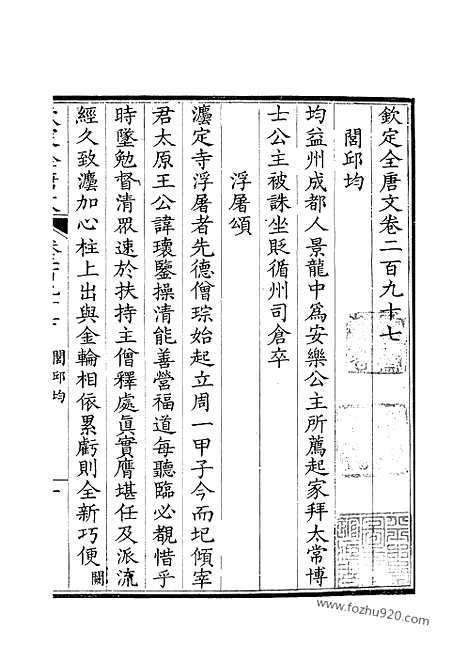 欽定全唐文卷二百九十七
閭邱均
均益州成都人景龍中爲安樂公主所薦起家拜太常博
士公主被誅坐貶循州司倉卒
浮屠頌
灋定寺浮屠者先德僧琮始起立周一甲子今而圮傾宰
君太原王公諱瓌鑒操清能善營福道每聽臨必覩惜乎
時墜勉督清眾速於扶持主僧釋處眞實膺堪任及派流
經久致灋加心柱上出與金輪相依累虧則全新巧便闕
閭邱均
一
www.fozhu920.com